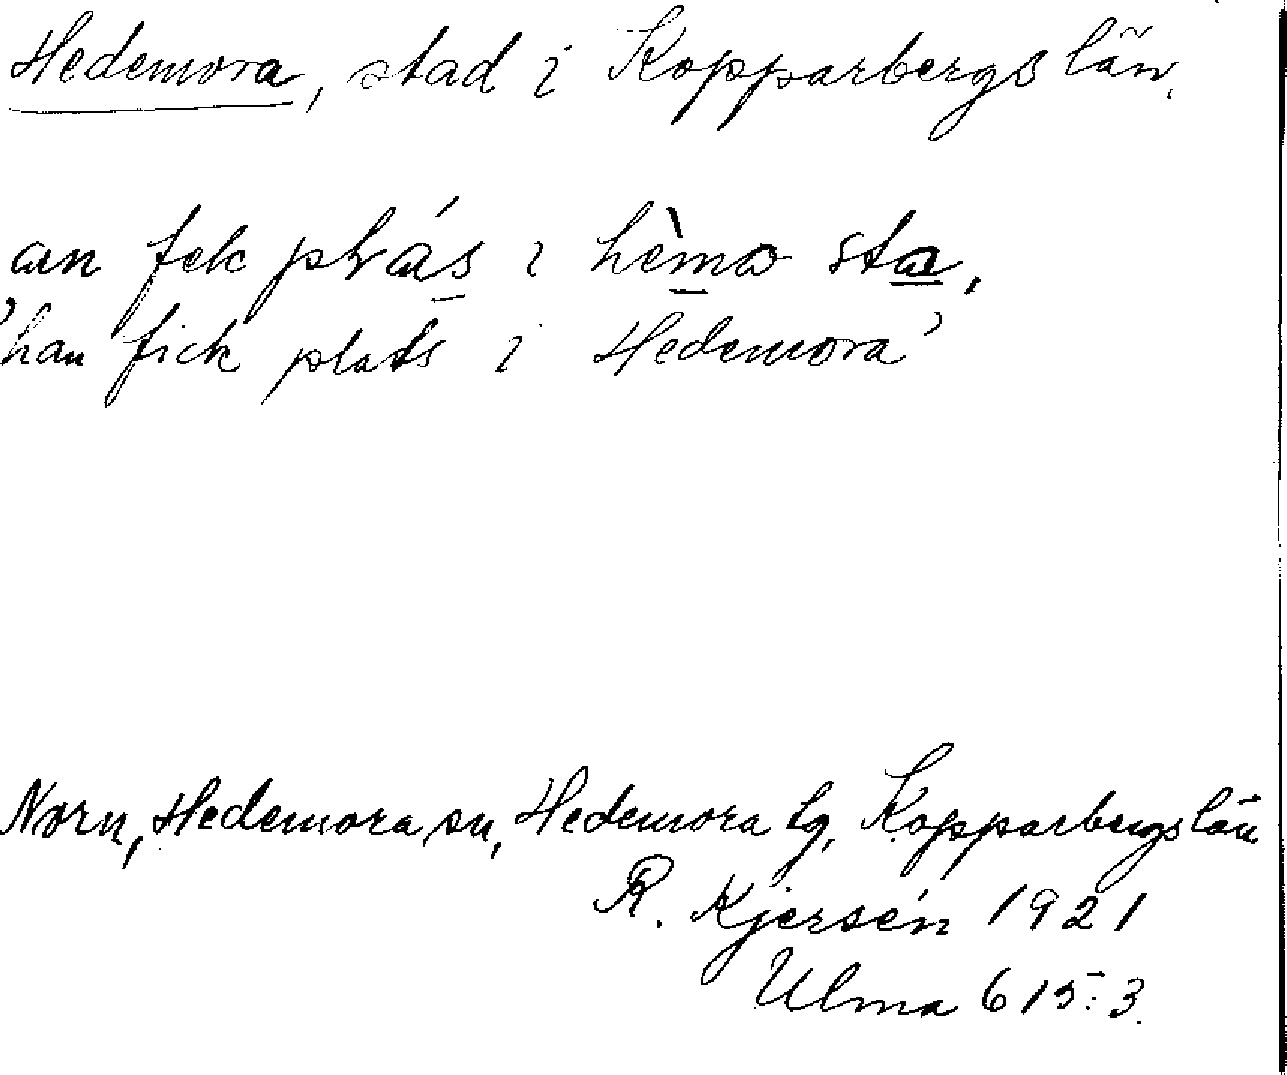 Hedemora, stad i Kopparbergs län.
an fek plrás i hèmo sta,
'han fick plats i Hedemora'
Norn, Hedemora sn, Hedemora tg, Kopparbergs län
R. Kjersén 1921
Ulma 615:3.